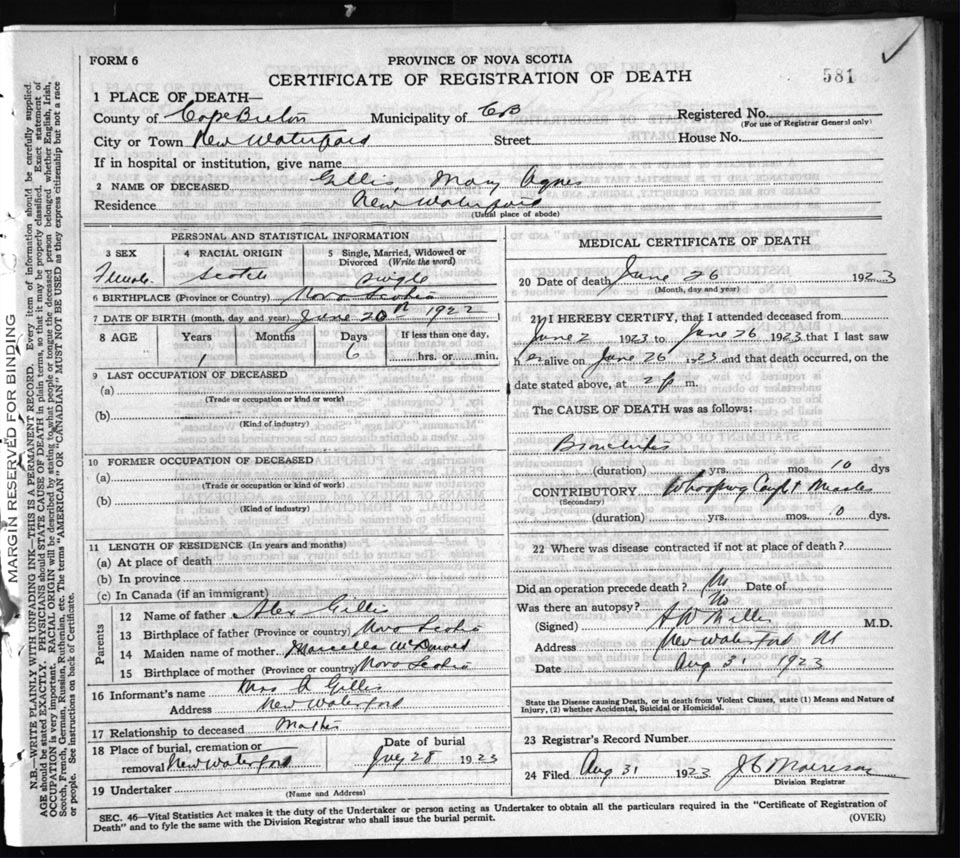 FORM 6
PROVINCE OF NOVA SCOTIA
CERTIFICATE OF REGISTRATION OF DEATH
581
1 PLACE OF DEATH—
County of Cape Breton Municipality of CB Registered No.
(For use of Registrar General only)
City or Town New Waterford Street House No.
If in hospital or institution, give name
2 NAME OF DECEASED Gillis, Mary Agnes
Residence New Waterford
(Usual place of abode)
PERSONAL AND STATISTICAL INFORMATION
3 SEX 4 RACIAL ORIGIN 5 Single, Married, Widowed or
Divorced (Write the word)
Female Scotch Single
6 BIRTHPLACE (Province or Country) Nova Scotia
7 DATE OF BIRTH (month, day and year) June 20th 1922
8 AGE Years Months Days If less than one day,
1 6 hrs. or min.
9 LAST OCCUPATION OF DECEASED
(a)
(Trade or occupation or kind or work)
(b)
(Kind of industry)
10 FORMER OCCUPATION OF DECEASED
(a)
(Trade or occupation or kind of work)
(b)
(Kind of industry)
11 LENGTH OF RESIDENCE (In years and months)
(a) At place of death
(b) In province
(c) In Canada (if an immigrant)
Parents
12 Name of father Alex Gillis
13 Birthplace of father (Province or country) Nova Scotia
14 Maiden name of mother Marcella
15 Birthplace of mother (Province or country) Nova Scotia
16 Informant's name Mrs A Gillis
Address New Waterford
17 Relationship to deceased Mother
18 Place of burial, cremation or Date of burial
removal New Waterford 28 1923
19 Undertaker
(Name and Address)
MEDICAL CERTIFICATE OF DEATH
20 Date of death June 26 1923
(Month, day and year)
21 I HEREBY CERTIFY, that I attended deceased from
June 2 1923 to June 26 1923 that I last saw
her alive on June 26 1923 and that death occurred, on the
date stated above, at 2 p m.
The CAUSE OF DEATH was as follows:
Bronchitis
(duration) yrs. mos. 10 dys
CONTRIBUTORY Whooping Cough Measles
(Secondary)
(duration) yrs. mos. 10 dys.
22 Where was disease contracted if not at place of death?
Did an operation precede death? No Date of
Was there an autopsy? No
(Signed) A W Miller M.D.
Address New Waterford
Date Aug 31 1923
State the Disease causing Death, or in death from Violent Causes, state (1) Means and Nature of
Injury, (2) whether Accidental, Suicidal or Homicidal.
23 Registrar's Record Number
24 Filed Aug 31 1923 J C Morrison
Division Registrar
SEC. 46—Vital Statistics Act makes it the duty of the Undertaker or person acting as Undertaker to obtain all the particulars required in the "Certificate of Registration of
Death" and to fyle the same with the Division Registrar who shall issue the burial permit.
(OVER)
MARGIN RESERVED FOR BINDING
N.B.—WRITE PLAINLY WITH UNFADING INK—THIS IS A PERMANENT RECORD. Every item of information should be carefully supplied.
AGE should be stated EXACTLY. PHYSICIANS should STATE CAUSE OF DEATH in plain terms, so that it may be properly classified. Exact statement of
OCCUPATION is very important. RACIAL ORIGIN will be described by stating to what people or tongue the deceased person belonged whether English, Irish,
Scotch, French, German, Russian, Ruthenian, etc. The terms "AMERICAN" or "CANADIAN" MUST NOT BE USED as they express citizenship but not a race
or people. See instructions on back of Certificate.